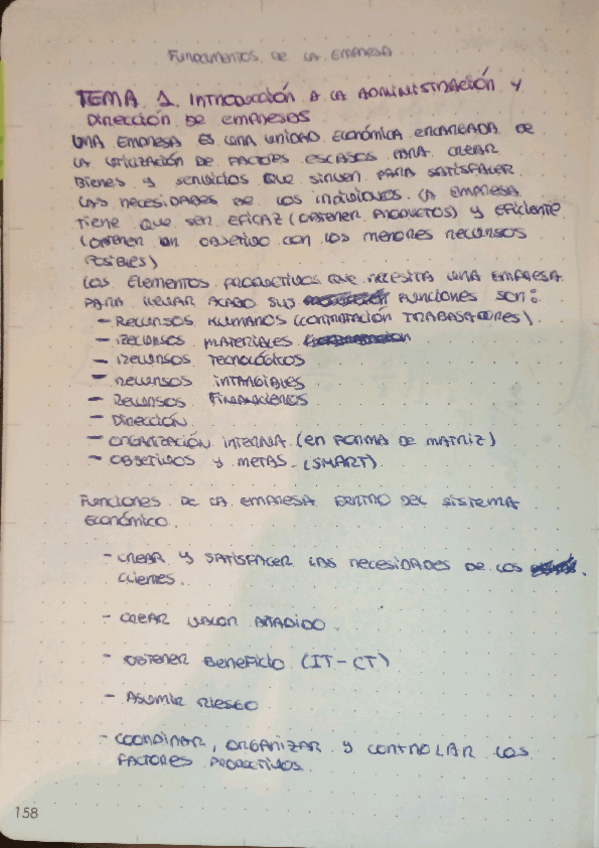 Fundamentos de la empresa
TEMA 1. Introducción a la administración y
Dirección de empresas
Una empresa es una unidad económica encargada de
la utilización de factores escasos para crear
bienes y servicios que sirven para satisfacer
las necesidades de los individuos. La empresa
tiene que ser eficaz (obtener productos) y eficiente
(obtener un objetivo con los menores recursos
posibles)
Los elementos productivos que necesita una empresa
para llevar acabo sus funciones son:
- Recursos humanos (contratación trabajadores).
- Recursos materiales
- Recursos tecnológicos
- Recursos intangibles
- Recursos financieros
- Dirección
- Organización interna (en forma de matriz)
- Objetivos y metas (SMART).
Funciones de la empresa dentro del sistema
económico.
- Crear y satisfacer las necesidades de los
clientes.
- Crear valor añadido.
- Obtener beneficio (IT-CT)
- Asumir riesgo
- Coordinar, organizar y controlar los
factores productivos.
158